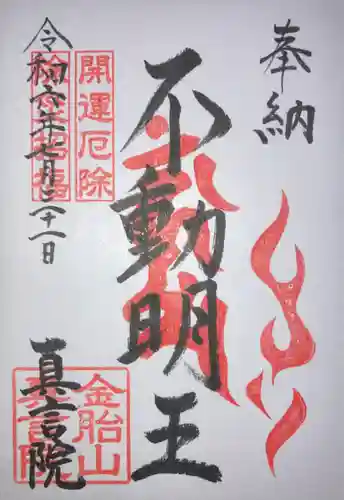 奉納
不動明王
開運厄除
令和六年七月二十一日
真言院
金胎山